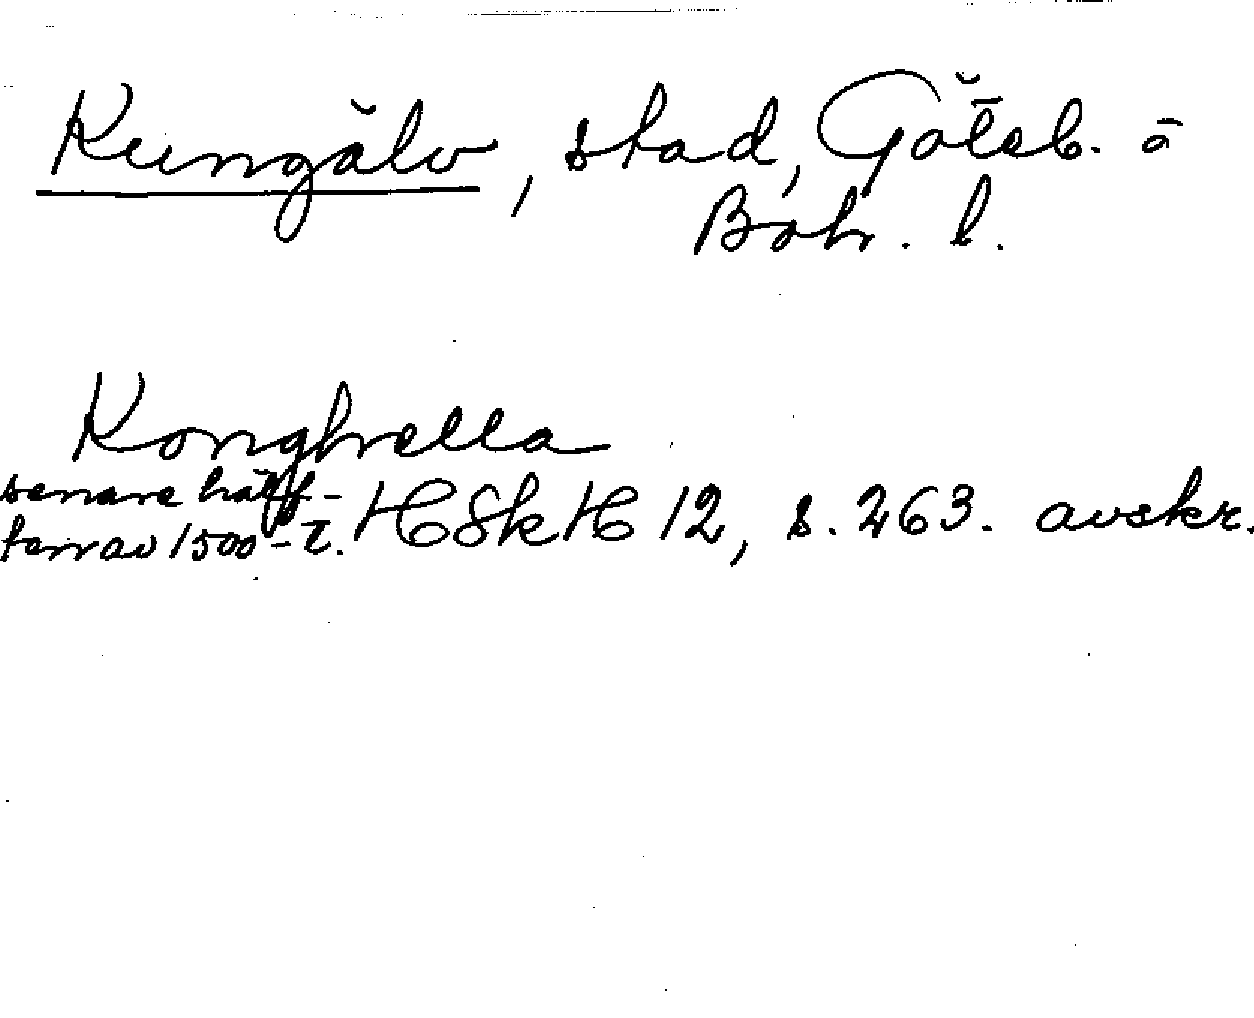 Kungälv, stad, Göteb. o
Boh. l.
Konghella
senare hälf-
ten av 1500-t. HSkH 12, s. 263. avskr.